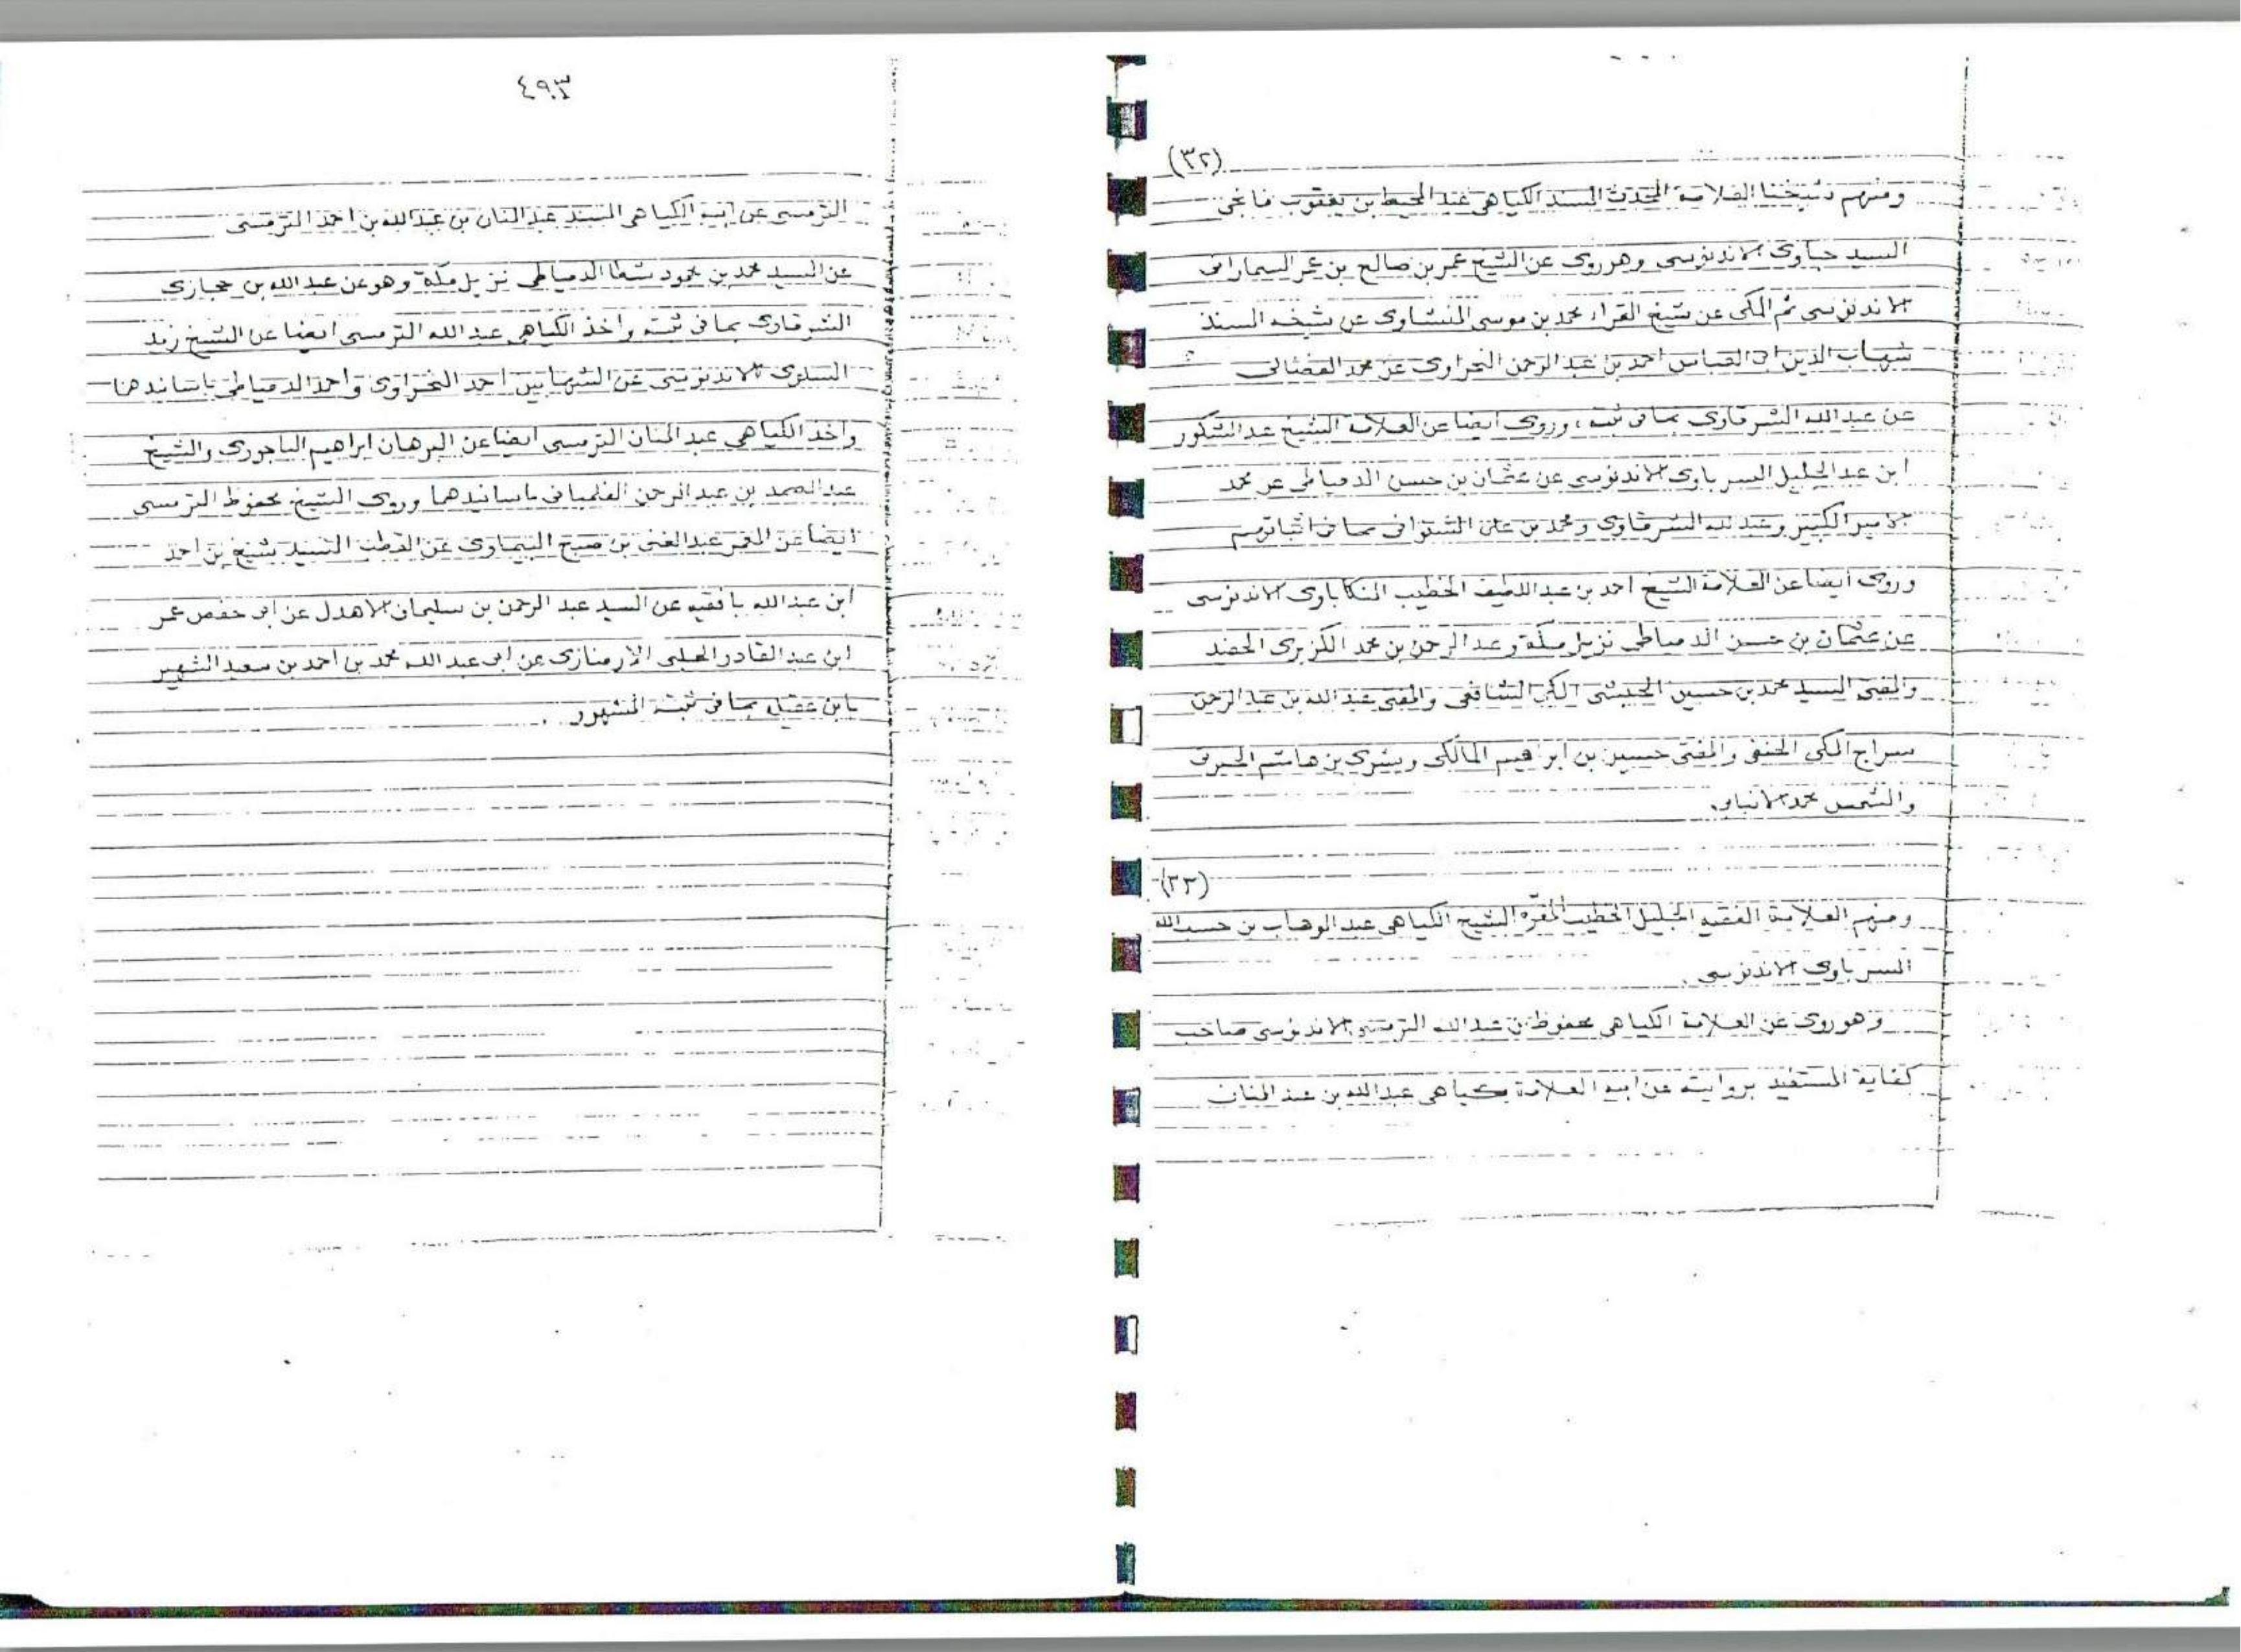 (٣٢)
ومنهم شيخنا العلامة المحدث المسند الكياهي عبد المحيط بن يعقوب فانجي
السيد جاوى الاندنوسى وهو روى عن الشيخ عمر بن صالح بن عمر السمارانى
الاندنوسى ثم المكى عن شيخ القراء محمد بن موسى المنشاوى عن شيخه المسند
شهاب الدين ابى العباس احمد بن عبد الرحمن النحراوى عن محمد الفضالى
عن عبد الله الشرقاوى بما فى ثبته، وروى ايضا عن العلامة الشيخ عبد الشكور
ابن عبد الجليل السرباوى الاندنوسى عن عثمان بن حسن الدمياطى عن محمد
الامير الكبير وعبد الله الشرقاوى ومحمد بن على الشنوانى بما فى اثباتهم
وروى ايضا عن العلامة الشيخ احمد بن عبد اللطيف الخطيب المنكاباوى الاندنوسى
عن عثمان بن حسن الدمياطى نزيل مكة وعبد الرحمن بن محمد الكزبرى الحفيد
والمفتى السيد محمد بن حسين الحبشى المكى الشافعى والمفتى عبد الله بن عبد الرحمن
سراج المكى الحنفى والمفتى حسين بن ابراهيم المالكى وبشرى بن هاشم الجبرتى
والشمس محمد الانبابى.
(٣٣)
ومنهم العلامة الفقيه الجليل الخطيب المفوّه الشيخ الكياهى عبد الوهاب بن حسب الله
السرباوى الاندنوسى.
وهو روى عن العلامة الكياهى محفوظ بن عبد الله الترمسى الاندنوسى صاحب
كفاية المستفيد بروايته عن ابيه العلامة كياهى عبد الله بن عبد المنان
٤٩٣
الترمسى عن ابيه الكياهى المسند عبد المنان بن عبد الله بن احمد الترمسى
عن السيد محمد بن محمود شطا الدمياطى نزيل مكة وهو عن عبد الله بن حجازى
الشرقاوى بما فى ثبته واخذ الكياهى عبد الله الترمسى ايضا عن الشيخ زيد
السلوى الاندنوسى عن الشهابين احمد النحراوى واحمد الدمياطى باساندهما
واخذ الكياهى عبد المنان الترمسى ايضا عن البرهان ابراهيم الباجورى والشيخ
عبد الصمد بن عبد الرحمن الفلمبانى باسانيدهما وروى الشيخ محفوظ الترمسى
ايضا عن المعمر عبد الغنى بن صبح البيماوى عن القطب السيد شيخ بن احمد
ابن عبد الله بافقيه عن السيد عبد الرحمن بن سليمان الاهدل عن ابى حفص عمر
ابن عبد القادر الحلبى الارمنازى عن ابى عبد الله محمد بن احمد بن سعيد الشهير
بابن عقيلة بما فى ثبته المشهور.